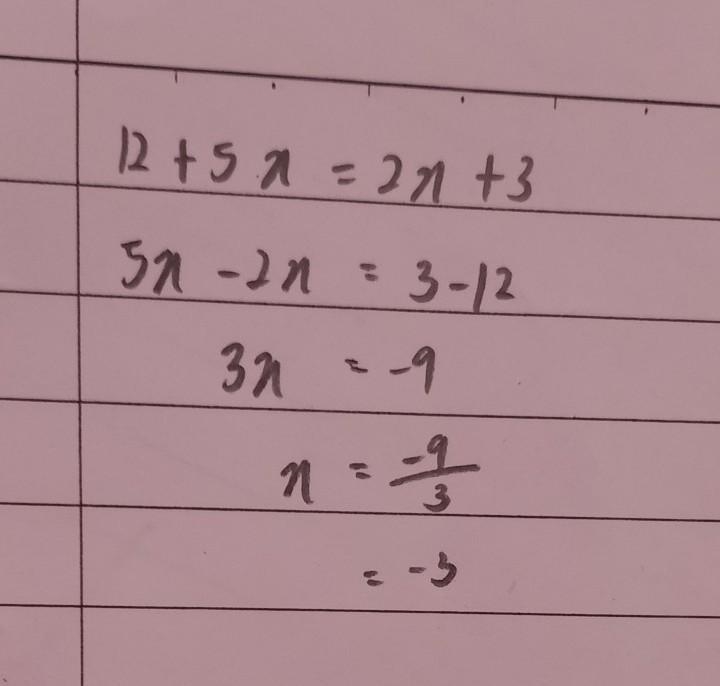 12 + 5x = 2x + 3
5x - 2x = 3 - 12
3x = -9
x = -9/3
= -3